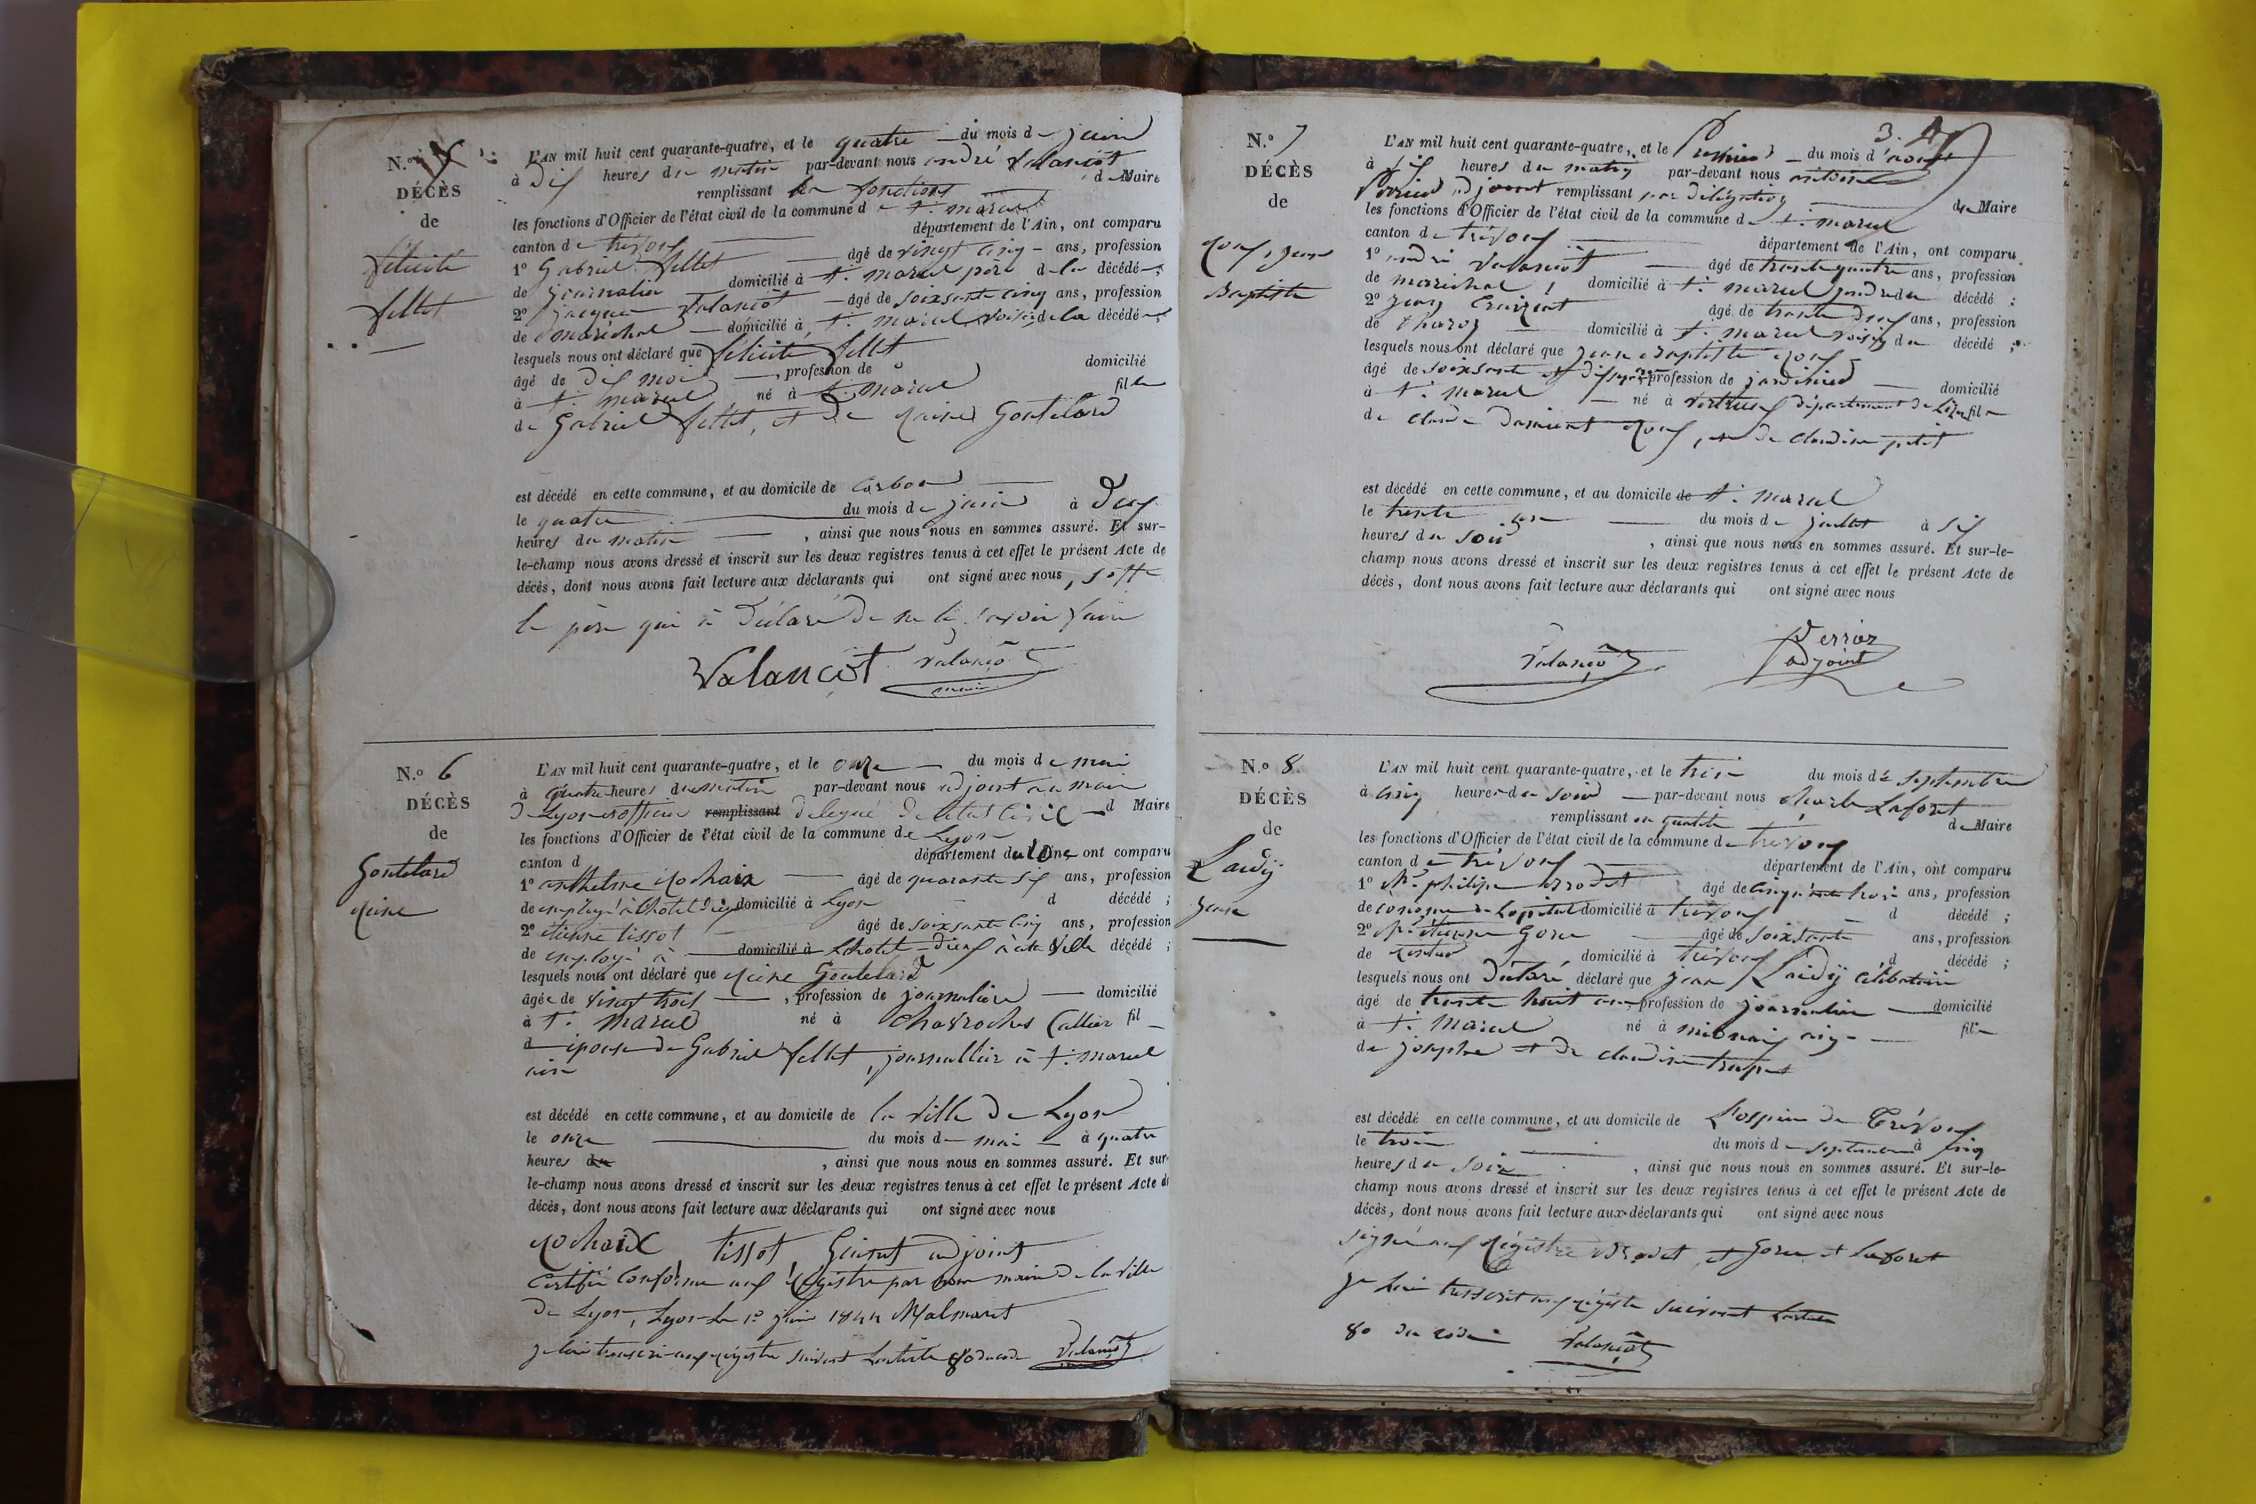 N.º
DÉCÈS
de
félicité
fellet
L'AN mil huit cent quarante-quatre, et le quatre du mois de juin
à dix heures du matin par-devant nous andré Valançot
remplissant les fonctions de Maire
les fonctions d'Officier de l'état civil de la commune de St. marcel
canton de trévoux département de l'Ain, ont comparu
1º Gabriel fellet âgé de vingt cinq ans, profession
de journalier domicilié à St. marcel père de la décédée;
2º jacque Valançot âgé de soixante cinq ans, profession
de maréchal domicilié à St. marcel voisin de la décédée;
lesquels nous ont déclaré que félicité fellet
âgé de dix moi, profession de domicilié
à St. marcel né à St. marcel fille
de Gabriel fellet, et de Reine Goutelard
est décédé en cette commune, et au domicile de
le quatre du mois de juin à deux
heures du matin, ainsi que nous nous en sommes assuré. Et sur-
le-champ nous avons dressé et inscrit sur les deux registres tenus à cet effet le présent Acte de
décès, dont nous avons fait lecture aux déclarants qui ont signé avec nous,
le père qui a déclaré de ne le savoir faire
Valançot Valançot
maire
N.º 6
DÉCÈS
de
Goutelard
Reine
L'AN mil huit cent quarante-quatre, et le onze du mois de mai
à quatre heures du matin par-devant nous adjoint au maire
de Lyon officier remplissant délégué de létat civil d Maire
les fonctions d'Officier de l'état civil de la commune de Lyon
canton d département du ont comparu
1º anthelme Rochaix âgé de quarante six ans, profession
de employé à lhotel dieu domicilié à Lyon d décédé;
2º etienne tissot âgé de soixante cinq ans, profession
de employé à domicilié à Lhotel dieu à cette Ville décédé;
lesquels nous ont déclaré que Reine Goutelard
âgée de vingt trois, profession de journalière domicilié
à St. marcel né à Chavroches allier fil
d épouse de Gabriel fellet, journallier à St. marcel
ain
est décédé en cette commune, et au domicile de la Ville de Lyon
le onze du mois de mai à quatre
heures du, ainsi que nous nous en sommes assuré. Et sur-
le-champ nous avons dressé et inscrit sur les deux registres tenus à cet effet le présent Acte de
décès, dont nous avons fait lecture aux déclarants qui ont signé avec nous
Rochaix tissot adjoint
Certifié Conforme aux Régistre par maire de la Ville
de Lyon, Lyon le juin 1844 Malmaret
je lai transcri aux régistre suivant Larticle 80 du code Valançot
N.º 7
DÉCÈS
de
Roux, jean
Baptiste
3.
L'AN mil huit cent quarante-quatre, et le premier du mois d'aoust
à six heures du matin par-devant nous antoine
Perrier adjoint remplissant par délégation de Maire
les fonctions d'Officier de l'état civil de la commune de St. marcel
canton de trévoux département de l'Ain, ont comparu
1º andré Valançot âgé de trente quatre ans, profession
de maréchal domicilié à St. marcel décédé;
2º jean âgé de trente deux ans, profession
de charon domicilié à St. marcel voisin du décédé;
lesquels nous ont déclaré que jean Baptiste Roux
âgé de soixante et dix profession de jardinier domicilié
à St. marcel né à département de fils
de claude Roux, et de claudine petit
est décédé en cette commune, et au domicile de St. marcel
le trente un du mois de juillet à six
heures du soir, ainsi que nous nous en sommes assuré. Et sur-le-
champ nous avons dressé et inscrit sur les deux registres tenus à cet effet le présent Acte de
décès, dont nous avons fait lecture aux déclarants qui ont signé avec nous
Valançot Perrier
adjoint
N.º 8
DÉCÈS
de
Laidÿ
jean
L'AN mil huit cent quarante-quatre, et le trois du mois de septembre
à cinq heures du soir par-devant nous charle Laforet
remplissant en qualité de Maire
les fonctions d'Officier de l'état civil de la commune de trévoux
canton de trévoux département de l'Ain, ont comparu
1º Mr. philipe âgé de cinquante trois ans, profession
de économe de Lopital domicilié à trévoux d décédé;
2º Mr. etienne Gorce âgé de soixante ans, profession
de rentier domicilié à trévoux d décédé;
lesquels nous ont déclaré déclaré que jean Laidÿ célibataire
âgé de trente huit ans, profession de journalier domicilié
à St. marcel né à mionnay ain fils
de josephe et de claudine
est décédé en cette commune, et au domicile de L'ospice de Trévoux
le trois du mois de septembre à cinq
heures du soir, ainsi que nous nous en sommes assuré. Et sur-le-
champ nous avons dressé et inscrit sur les deux registres tenus à cet effet le présent Acte de
décès, dont nous avons fait lecture aux déclarants qui ont signé avec nous
signé aux Régistre et Gorce et Laforet
je lai transcrit aux régistre suivant Larticle
80 du code Valançot